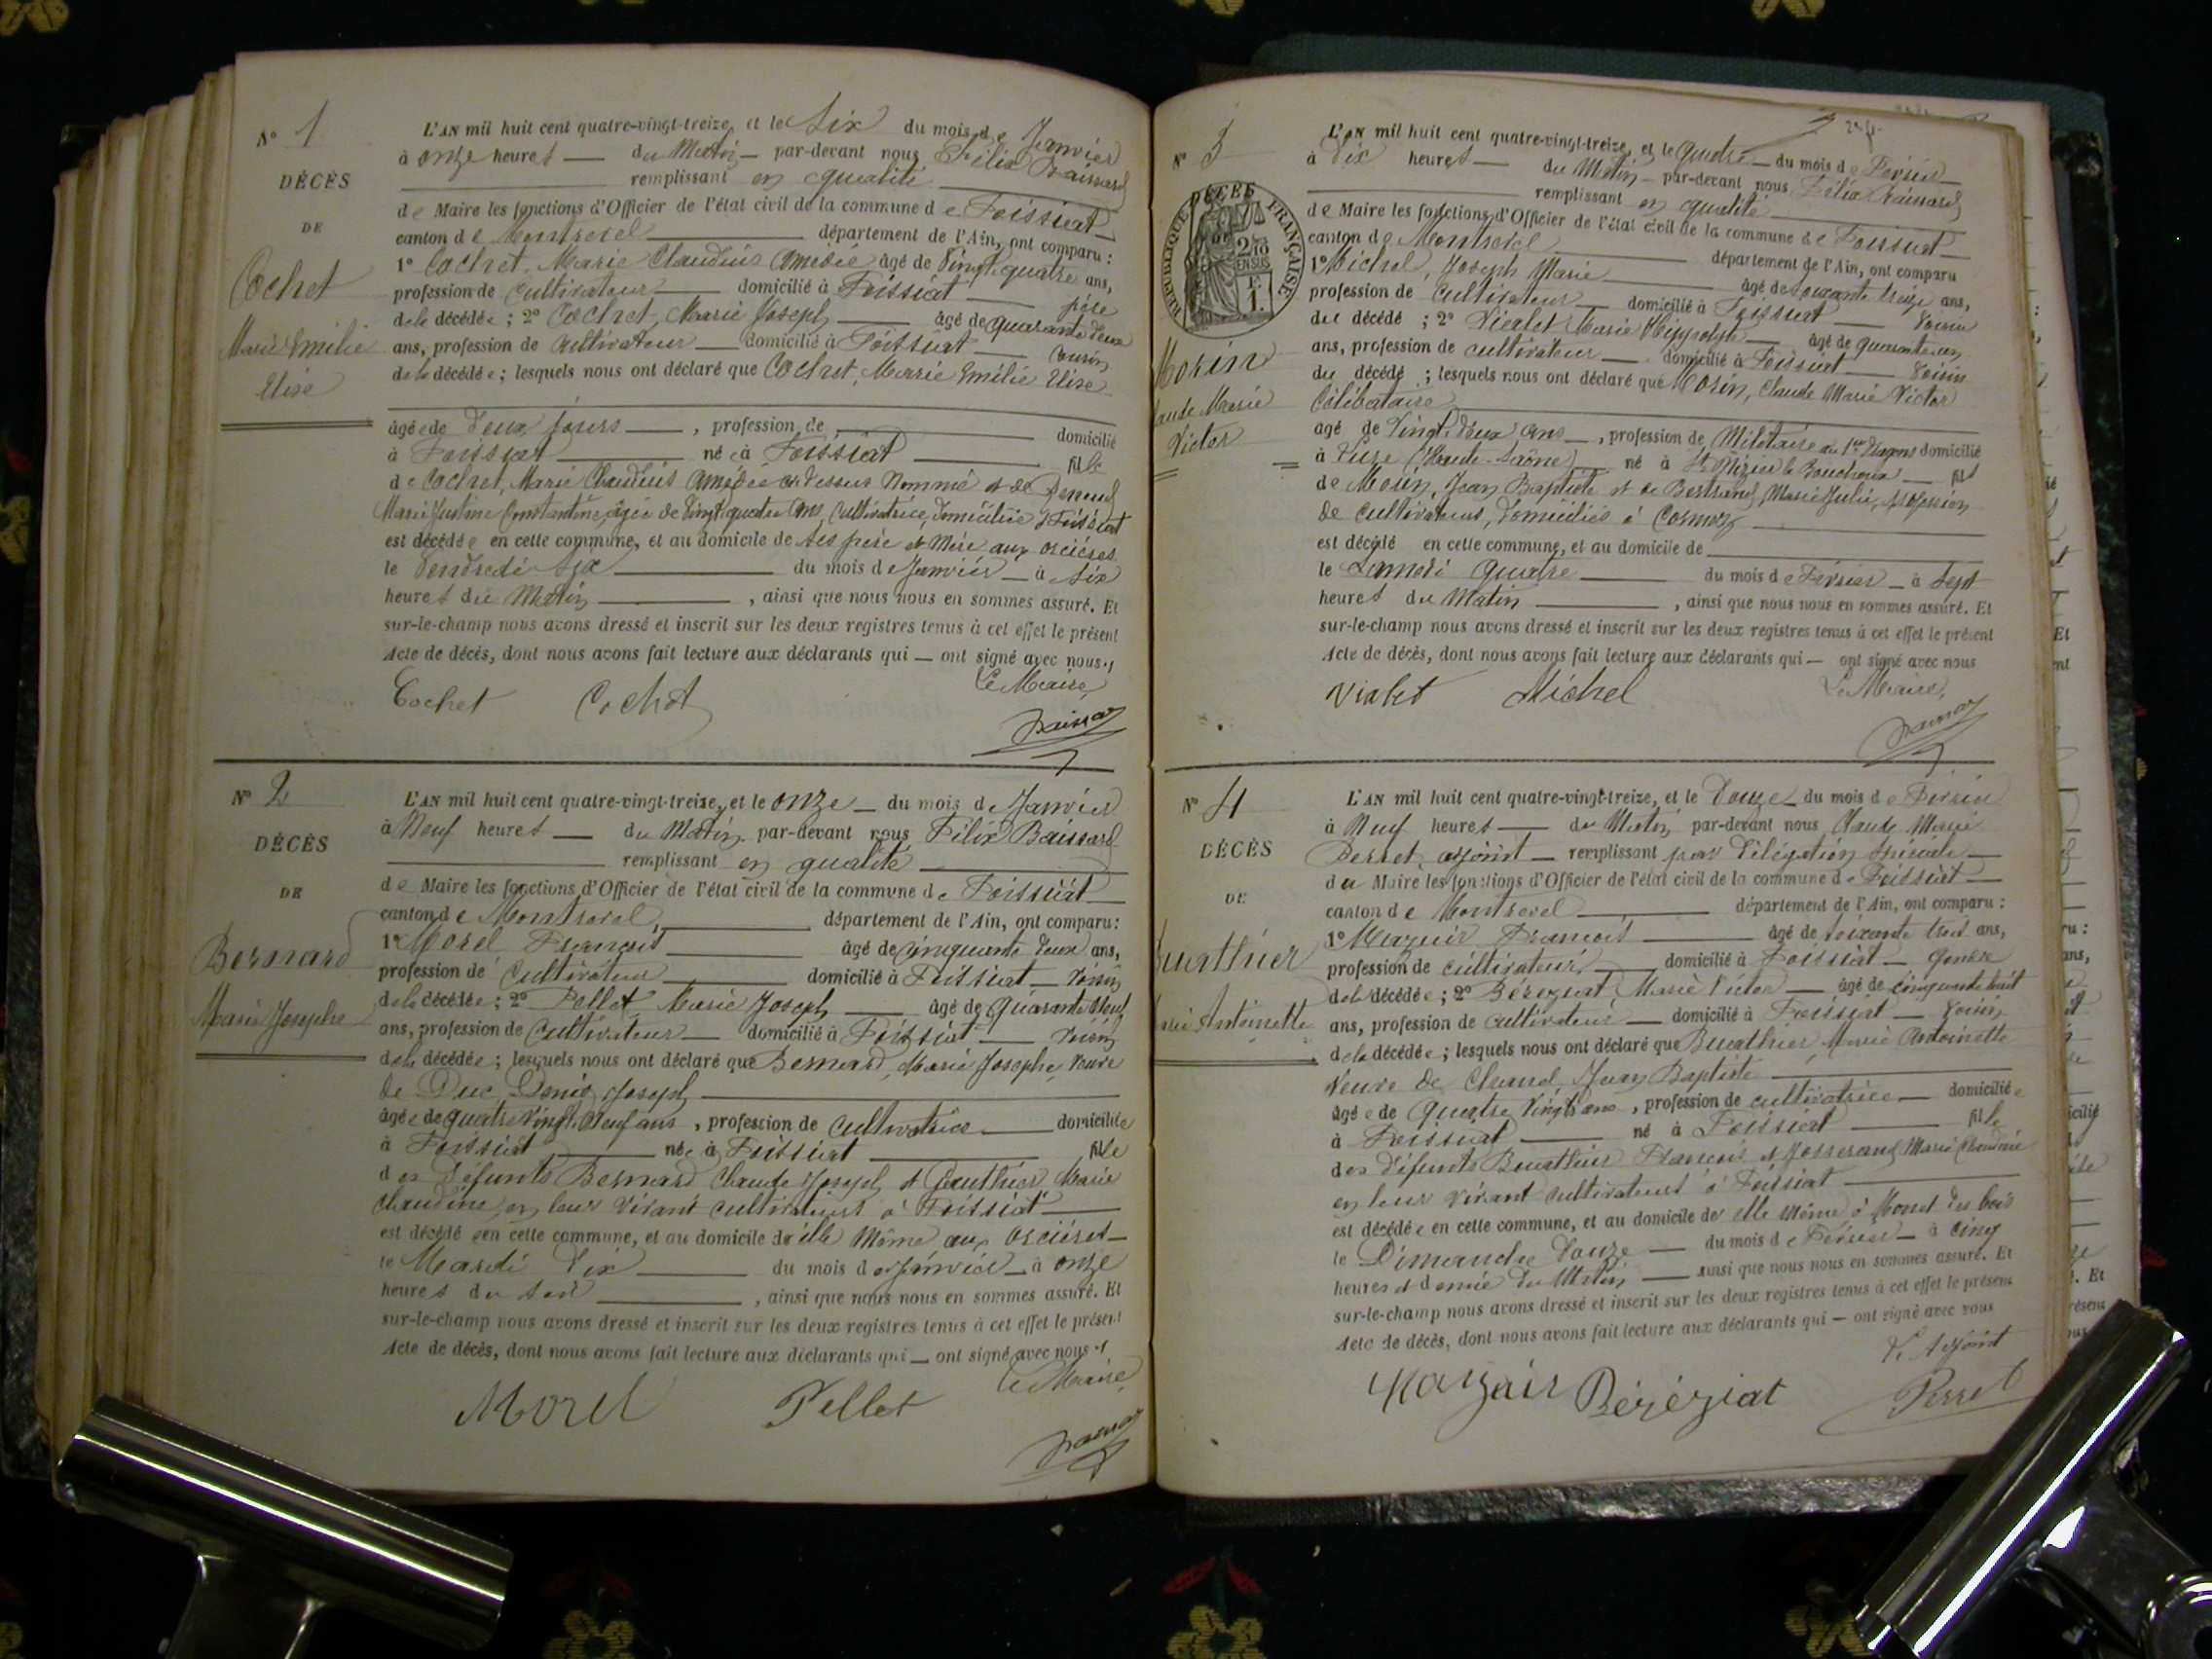 N° 1
DÉCÈS
DE
Cochet
Marie Emilie
Elise
L'AN mil huit cent quatre-vingt-treize, et le Six du mois de Janvier
à onze heures — du Matin — par-devant nous Félix Baissard
remplissant en qualité
de Maire les fonctions d'Officier de l'état civil de la commune de Foissiat
canton de Montrevel département de l'Ain, ont comparu :
1° Cochet, Marie Claudius Amédée âgé de Vingt quatre ans,
profession de Cultivateur domicilié à Foissiat père
de la décédée ; 2° Cochet, Marie Joseph âgé de quarante deux
ans, profession de Cultivateur domicilié à Foissiat Cousin
de la décédée ; lesquels nous ont déclaré que Cochet, Marie Emilie Elise
âgée de Deux jours , profession de domicilié
à Foissiat née à Foissiat fille
de Cochet, Marie Claudius Amédée ci-dessus Nommé et de
Marie Justine Constantine, âgée de Vingt quatre ans, Cultivatrice, domiciliée à Foissiat
est décédée en cette commune, et au domicile de ses père et Mère aux
le Vendredi Six du mois de Janvier à Six
heures du Matin , ainsi que nous nous en sommes assuré. Et
sur-le-champ nous avons dressé et inscrit sur les deux registres tenus à cet effet le présent
Acte de décès, dont nous avons fait lecture aux déclarants qui — ont signé avec nous.
Le Maire,
Cochet Cochet
N° 2
DÉCÈS
DE
Bernard
Marie Josephe
L'AN mil huit cent quatre-vingt-treize, et le onze — du mois de Janvier
à Neuf heures — du Matin par-devant nous Félix Baissard
remplissant en qualité
de Maire les fonctions d'Officier de l'état civil de la commune de Foissiat
canton de Montrevel, département de l'Ain, ont comparu :
1° Morel François âgé de Cinquante Deux ans,
profession de Cultivateur domicilié à Foissiat — Voisin
de la décédée ; 2° Pellet Marie Joseph âgé de Quarante Neuf
ans, profession de Cultivateur — domicilié à Foissiat — Voisin
de la décédée ; lesquels nous ont déclaré que Bernard, Marie Josephe, Veuve
de Duc, Denis Joseph
âgée de quatre Vingt Neuf ans , profession de Cultivatrice domiciliée
à Foissiat née à Foissiat fille
des Défunts Bernard Claude Joseph et Gauthier Marie
Claudine, en leur Vivant Cultivateurs à Foissiat
est décédée en cette commune, et au domicile d'elle Même aux
le Mardi Dix du mois de Janvier — à onze
heures du Soir , ainsi que nous nous en sommes assuré. Et
sur-le-champ nous avons dressé et inscrit sur les deux registres tenus à cet effet le présent
Acte de décès, dont nous avons fait lecture aux déclarants qui — ont signé avec nous.
Le Maire,
Morel Pellet
N° 3
DÉCÈS
RÉPUBLIQUE FRANÇAISE
2/10 EN SUS
1 F.
Morin
Claude Marie
Victor
L'AN mil huit cent quatre-vingt-treize, et le quatre — du mois de Février
à Dix heures — du Matin — par-devant nous Félix Baissard
remplissant en qualité
de Maire les fonctions d'Officier de l'état civil de la commune de Foissiat
canton de Montrevel département de l'Ain, ont comparu
1° Michel, Joseph Marie âgé de soixante treize ans,
profession de Cultivateur domicilié à Foissiat Voisin
du décédé ; 2° Vialet Marie Hippolyte âgé de quarante un
ans, profession de cultivateur — domicilié à Foissiat — Voisin
du décédé ; lesquels nous ont déclaré que Morin, Claude Marie Victor
Célibataire
agé de Vingt Deux ans , profession de Militaire au 1er Dragons domicilié
à Lure (Haute-Saône) né à St Nizier le Bouchoux fils
de Morin, Jean Baptiste et de Bertrand, Marie Julie, profession
de cultivateurs, domiciliés à Cormoz
est décédé en cette commune, et au domicile de
le Samedi quatre du mois de Février — à Sept
heures du Matin , ainsi que nous nous en sommes assuré. Et
sur-le-champ nous avons dressé et inscrit sur les deux registres tenus à cet effet le présent
Acte de décès, dont nous avons fait lecture aux déclarants qui — ont signé avec nous
Le Maire,
Vialet Michel
N° 4
DÉCÈS
DE
Buathier
Marie Antoinette
L'AN mil huit cent quatre-vingt-treize, et le Douze du mois de Février
à Neuf heures — du Matin par-devant nous Claude Marie
Perret, adjoint — remplissant par Délégation Spéciale
du Maire les fonctions d'Officier de l'état civil de la commune de Foissiat
canton de Montrevel département de l'Ain, ont comparu :
1° Mazuir François âgé de soixante trois ans,
profession de cultivateur, domicilié à Foissiat — Gendre
de la décédée ; 2° Béréziat, Marie Victor — âgé de cinquante huit
ans, profession de cultivateur — domicilié à Foissiat — Voisin
de la décédée ; lesquels nous ont déclaré que Buathier Marie Antoinette
Veuve de Chanel, Jean Baptiste
âgée de Quatre Vingts ans , profession de cultivatrice — domiciliée
à Foissiat né à Foissiat fille
des Défunts Buathier François et Josserand Marie Claudine
en leur vivant cultivateurs à Foissiat
est décédée en cette commune, et au domicile de elle Même à Monet des bois
le Dimanche Douze — du mois de Février — à cinq
heures et demie du Matin — ainsi que nous nous en sommes assuré. Et
sur-le-champ nous avons dressé et inscrit sur les deux registres tenus à cet effet le présent
Acte de décès, dont nous avons fait lecture aux déclarants qui — ont signé avec nous
L'Adjoint
Mazuir Béréziat Perret